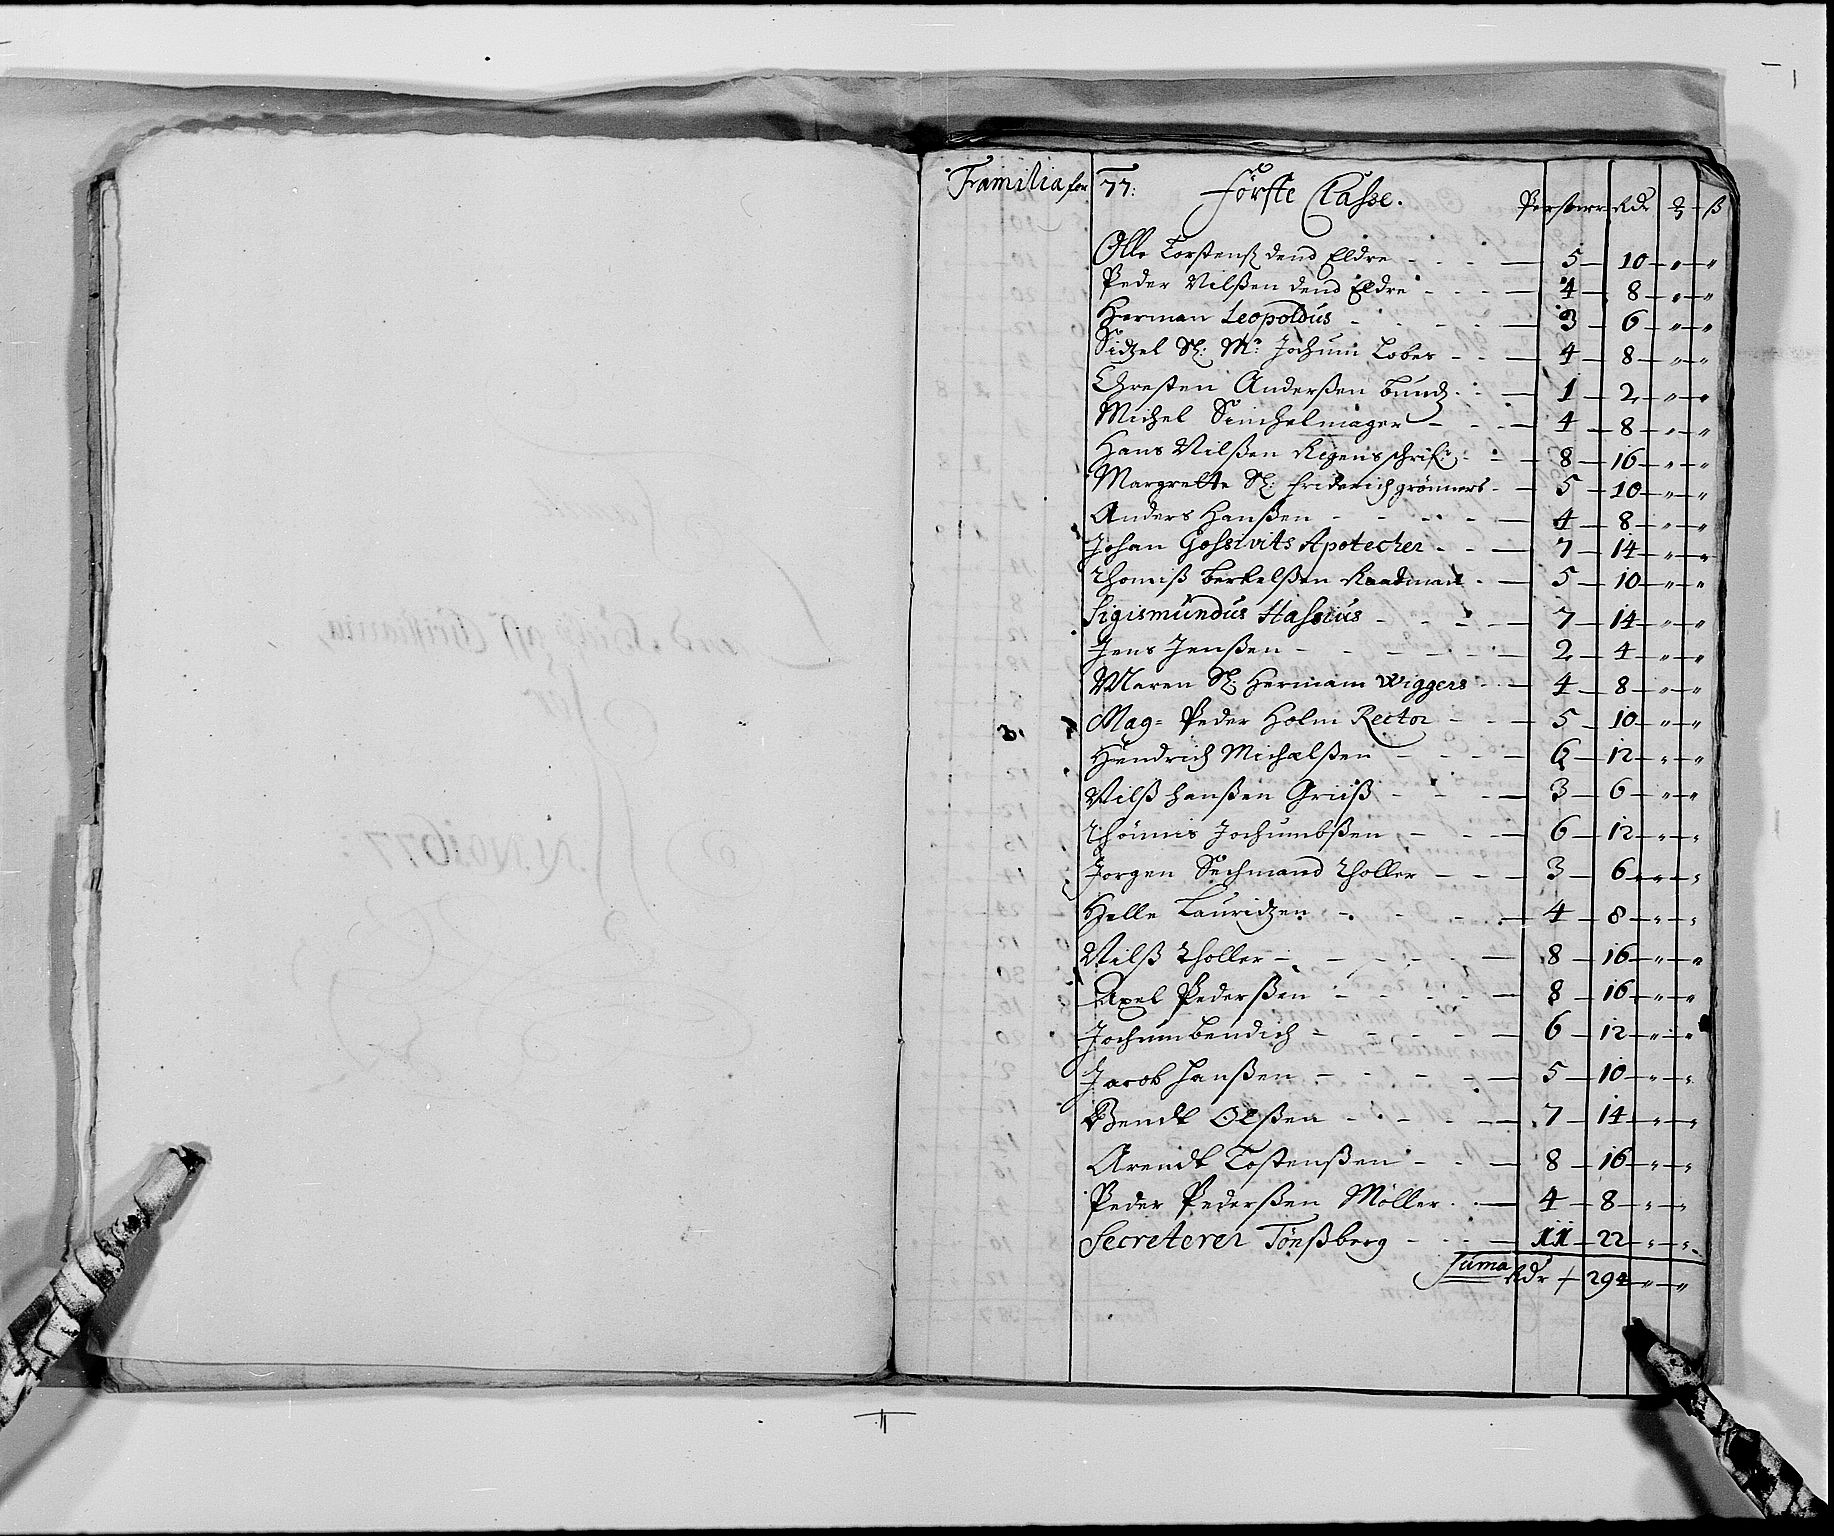 Familia for 77: Første Classe. Personer Rdr
Olle Torstens dend Eldre - 5 - 10 - " - "
Peder Nilßen dend Eldre - 4 - 8 - " - "
Herman Leopoldus - 3 - 6 - " - "
Sidzel Sl: Mr: Jochum Lobes - 4 - 8 - " - "
Chresten Anderßen Bundz - 1 - 2 - " - "
Michel Simchelmager - 4 - 8 - " - "
Hans Nilßen - 8 - 16 - " - "
Margrette Sl: friderich grönners - 5 - 10 - " - "
Anders Hanßen - 4 - 8 - " - "
Johan Goswits Apotecher - 7 - 14 - " - "
Thomiß Bertelßen Raadmand - 5 - 10 - " - "
Sigismundus Hassius - 7 - 14 - " - "
Jens Jenßen - 2 - 4 - " - "
Maren Sl: Hermam Wiggers - 4 - 8 - " - "
Mag= Peder Holm Rector - 5 - 10 - " - "
Hendrich Michaelßen - 6 - 12 - " - "
Nilß Hanßen Griiß - 3 - 6 - " - "
Thönnis Jochumbßen - 6 - 12 - " - "
Jorgen Sechmand Tholler - 3 - 6 - " - "
Helle Lauridzen - 4 - 8 - " - "
Nilß Tholler - 8 - 16 - " - "
Axel Pederßen - 8 - 16 - " - "
Jochum Bendich - 6 - 12 - " - "
Jacob Hanßen - 5 - 10 - " - "
Bendt Olßen - 7 - 14 - " - "
Arendt Tostenßen - 8 - 16 - " - "
Peder Pederßen Möller - 4 - 8 - " - "
Secreterer Tönßberg - 11 - 22 - " - "
Suma Rdr 294 - " - "